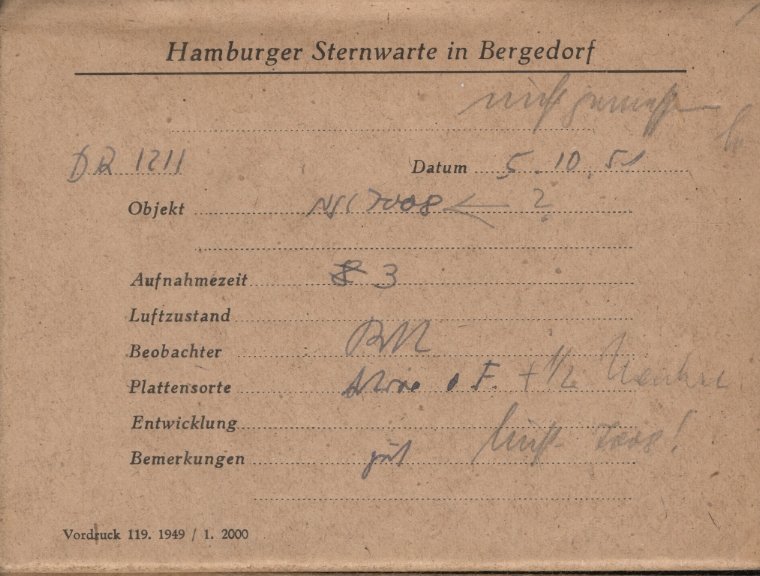 Hamburger Sternwarte in Bergedorf
nicht
DR 1211 Datum 5.10.51
Objekt NGC 7008 ← ?
Aufnahmezeit 3
Luftzustand
Beobachter
Plattensorte Astro o F. + 1/2
Entwicklung
Bemerkungen gut nicht 7008!
Vordruck 119. 1949 / 1. 2000